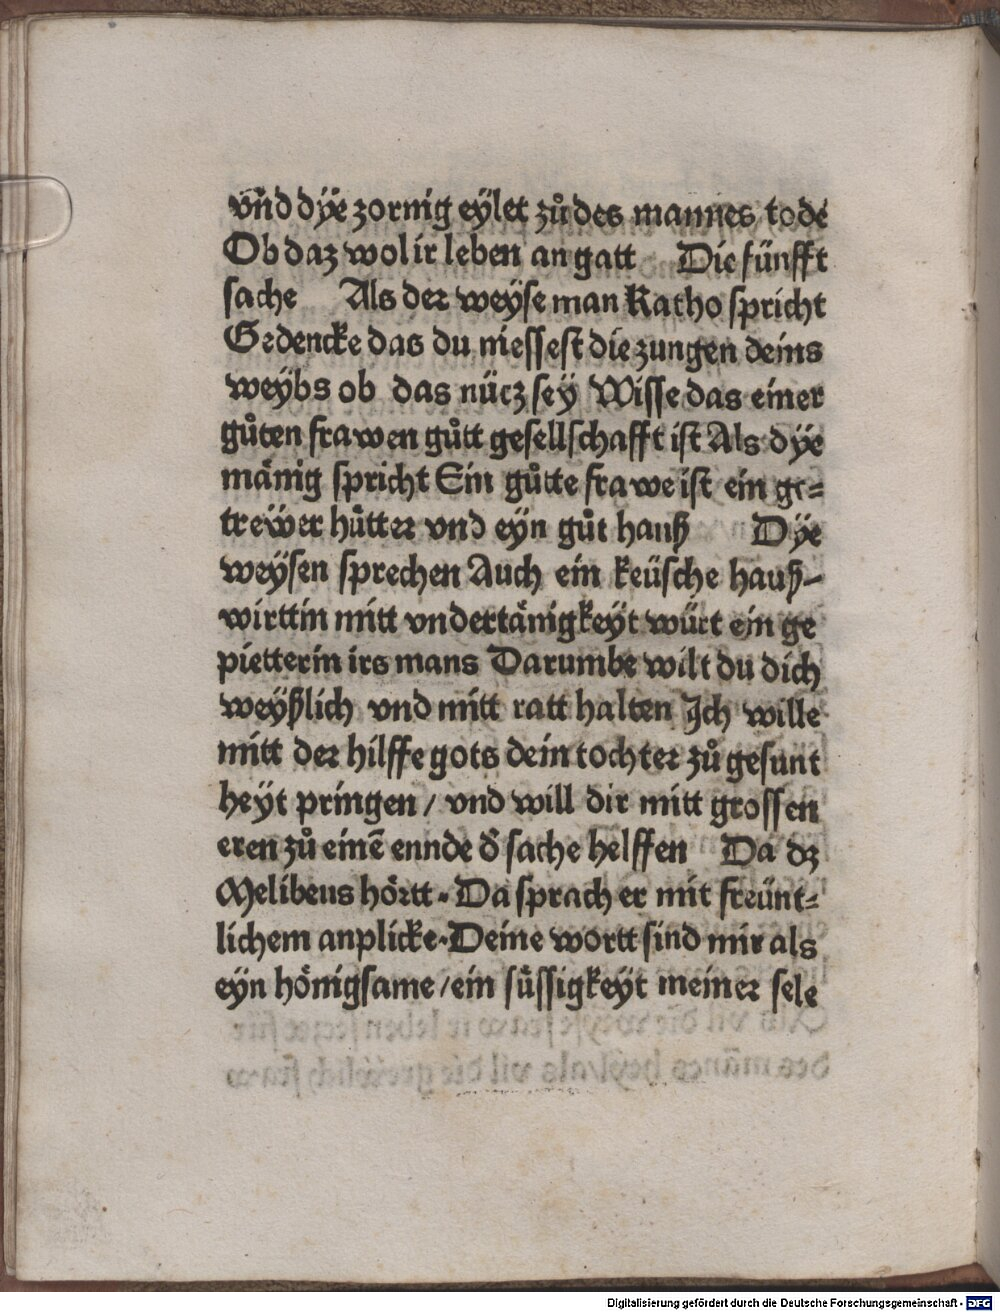 vnd dÿe zornig eÿlet zů des mannes tode
Ob daz wol ir leben an gatt Die fünfft
sache Als der weÿse man Katho spricht
Gedencke das du niessest die zungen deins
weÿbs ob das nücz seÿ Wisse das einer
gůten frawen gůtt gesellschafft ist Als dÿe
mänig spricht Ein gůtte frawe ist ein ge⸗
treẅer hůtter vnd eÿn gůt hauß Dÿe
weÿsen sprechen Auch ein keüsche hauß⸗
wirttin mitt vndertänigkeÿt würt ein ge
pietterin irs mans Darumbe wilt du dich
weÿßlich vnd mitt ratt halten Ich wille
mitt der hilffe gots dein tochter zů gesunt
heÿt pringen / vnd will dir mitt grossen
eren zů einē ennde d̄ sache helffen Da dz
Melibeus hörtt. Da sprach er mit freünt⸗
lichem anplicke. Deine wortt sind mir als
eÿn hönigsame / ein süssigkeÿt meiner sele
Digitalisierung gefördert durch die Deutsche Forschungsgemeinschaft - DFG